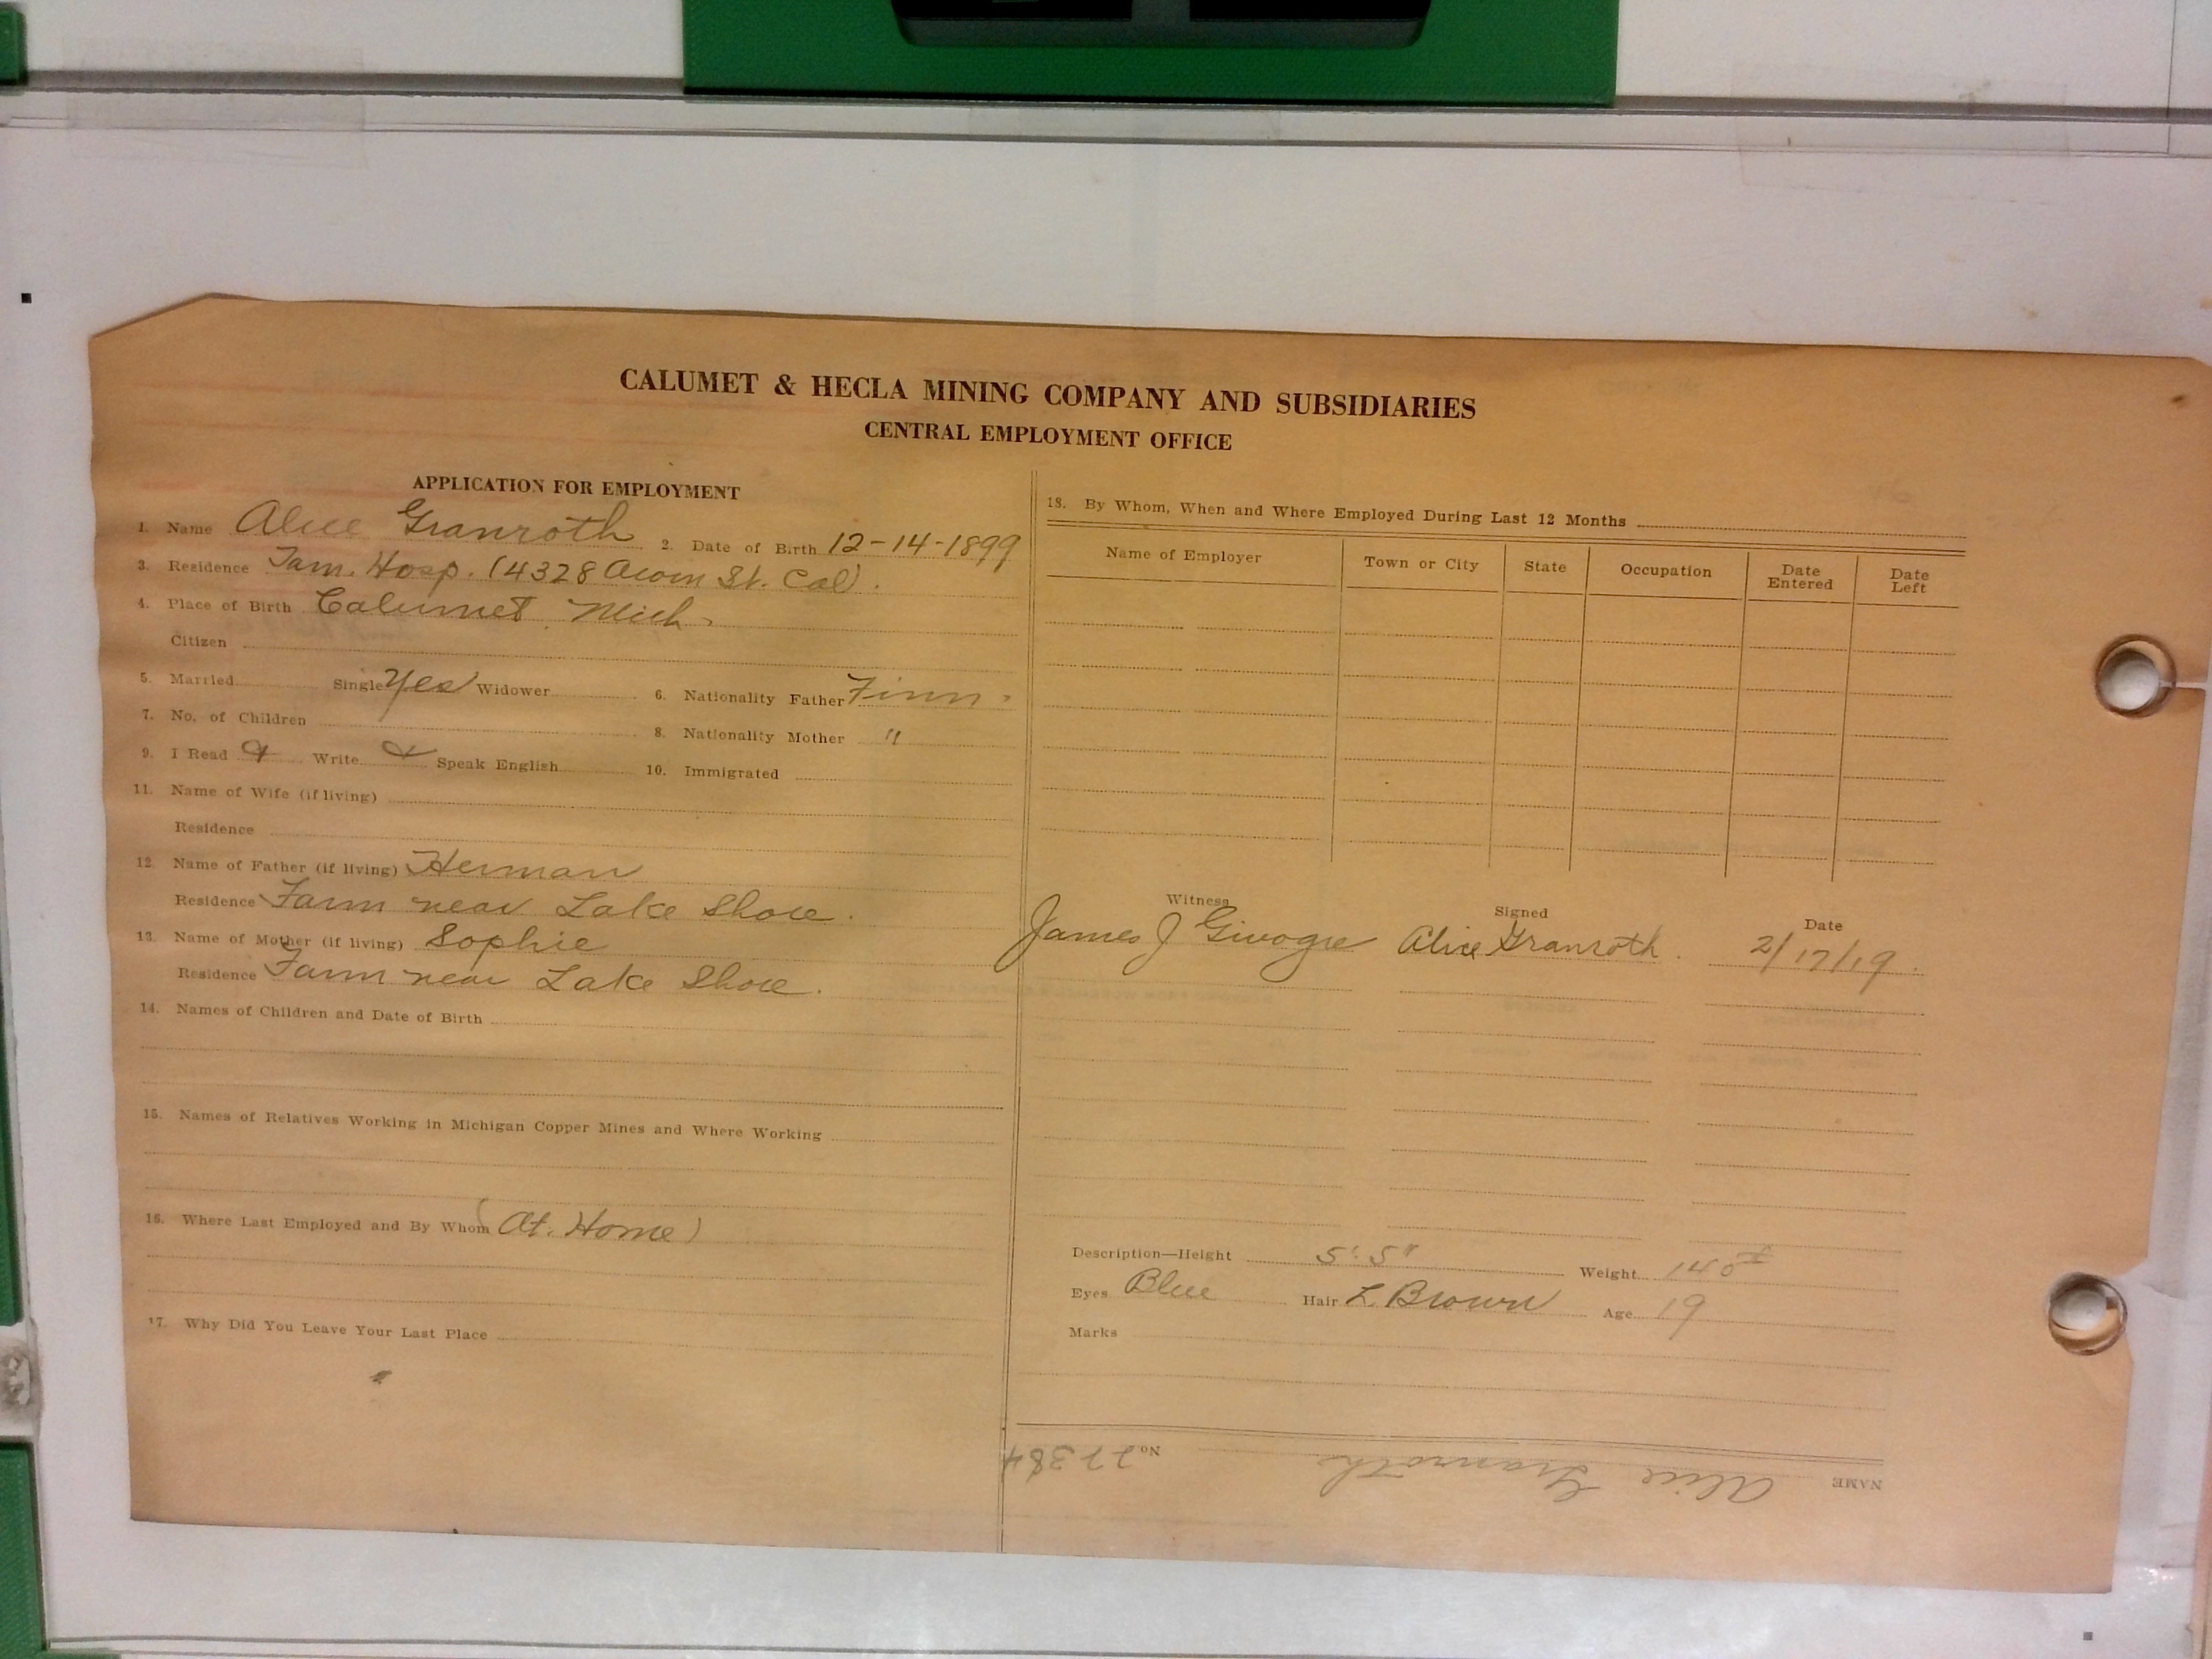 CALUMET & HECLA MINING COMPANY AND SUBSIDIARIES
CENTRAL EMPLOYMENT OFFICE
APPLICATION FOR EMPLOYMENT
1. Name Alice Granroth 2. Date of Birth 12-14-1899
3. Residence Tam. Hosp. (4328 Acorn St. Cal).
4. Place of Birth Calumet, Mich.
Citizen
5. Married Single Yes Widower 6. Nationality Father Finn.
7. No. of Children 8. Nationality Mother "
9. I Read & Write & Speak English 10. Immigrated
11. Name of Wife (if living)
Residence
12. Name of Father (if living) Herman
Residence Farm near Lake Shore.
13. Name of Mother (if living) Sophie
Residence Farm near Lake Shore.
14. Names of Children and Date of Birth
15. Names of Relatives Working in Michigan Copper Mines and Where Working
16. Where Last Employed and By Whom (At. Home)
17. Why Did You Leave Your Last Place
18. By Whom, When and Where Employed During Last 12 Months
Name of Employer Town or City State Occupation Date Entered Date Left
Witness Signed Date
James J Alice Granroth. 2/17/19.
Description—Height 5' 5" Weight 140
Eyes Blue Hair L. Brown Age 19
Marks
NAME Alice Granroth No. 27384